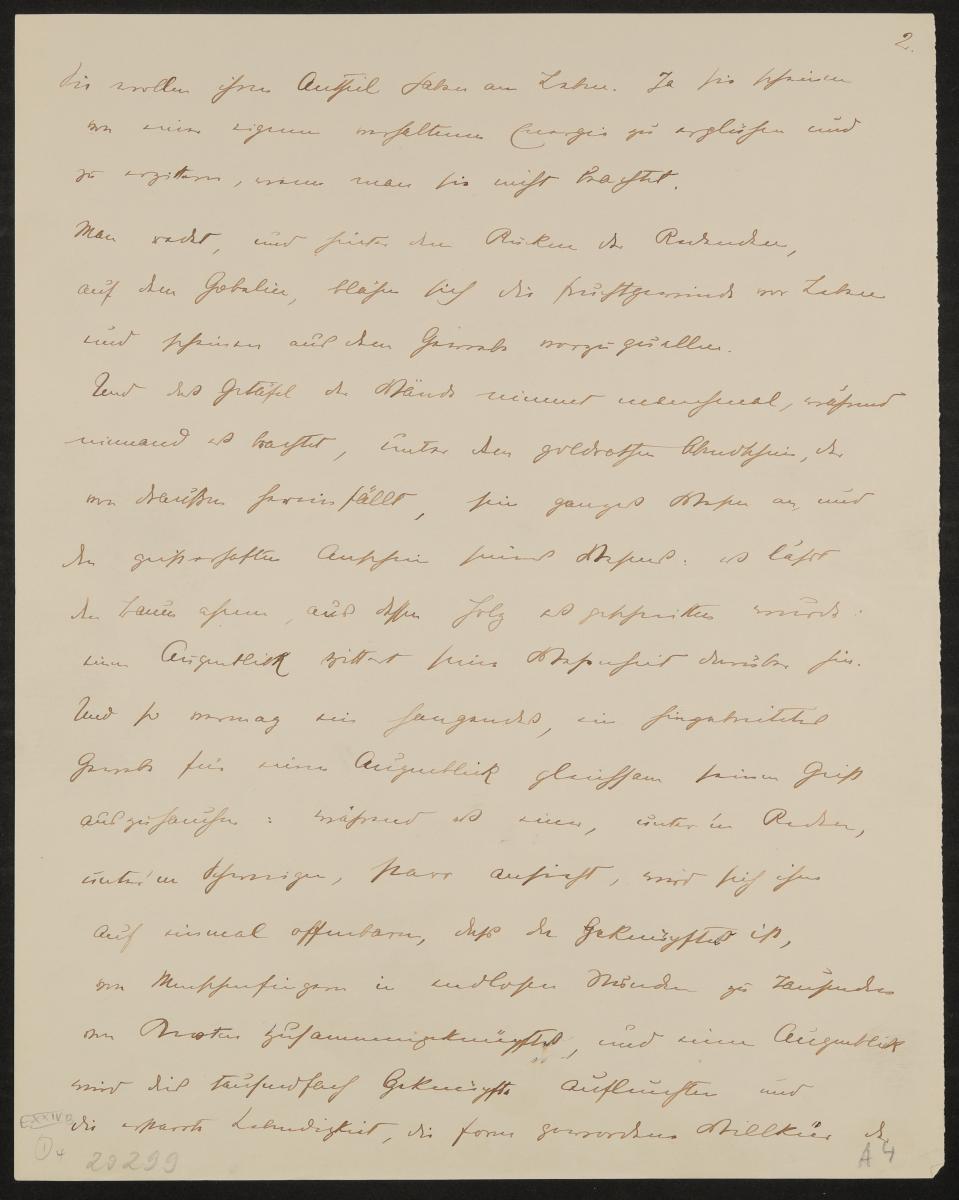 2.
Sie wollen ihren Antheil haben am Leben. Ja sie scheinen
von einer eigenen verhaltenen Energie zu erglühen und
zu erzittern, wenn man sie nicht beachtet.
Man redet, und hinter dem Rücken der Redenden,
auf dem Gobelin, blähen sich die Fruchtgewinde vor Leben
und scheinen aus dem Gewebe vorzuquellen.
Und das Getäfel der Wände nimmt manchmal, während
niemand es beachtet, unter dem goldrothen Abendschein, der
von draußen hereinfällt, sein ganzes Wesen an, und
den geisterhaften Anschein seines Wesens: es läßt
den Baum ahnen, aus dessen Holz es geschnitten wurde:
einen Augenblick zittert seine Wesenheit darüber hin.
Und so vermag ein hangendes, ein hingebreitetes
Gewebe für einen Augenblick gleichsam seinen Geist
auszuhauchen: während es einer, unter'm Reden,
unter'm Schweigen, starr ansieht, wird sich ihm
auf einmal offenbaren, dass da Geknüpftes ist,
von Menschenfingern in endlosen Stunden zu Tausenden
von Knoten Zusammengeknüpftes, und einen Augenblick
wird dies tausendfach Geknüpfte aufleuchten und
die erstarrte Lebendigkeit, die Form gewordene Willkür der
20299
A 4